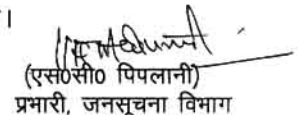 ।
(एस0सी0 पिपलानी)
प्रभारी, जनसूचना विभाग